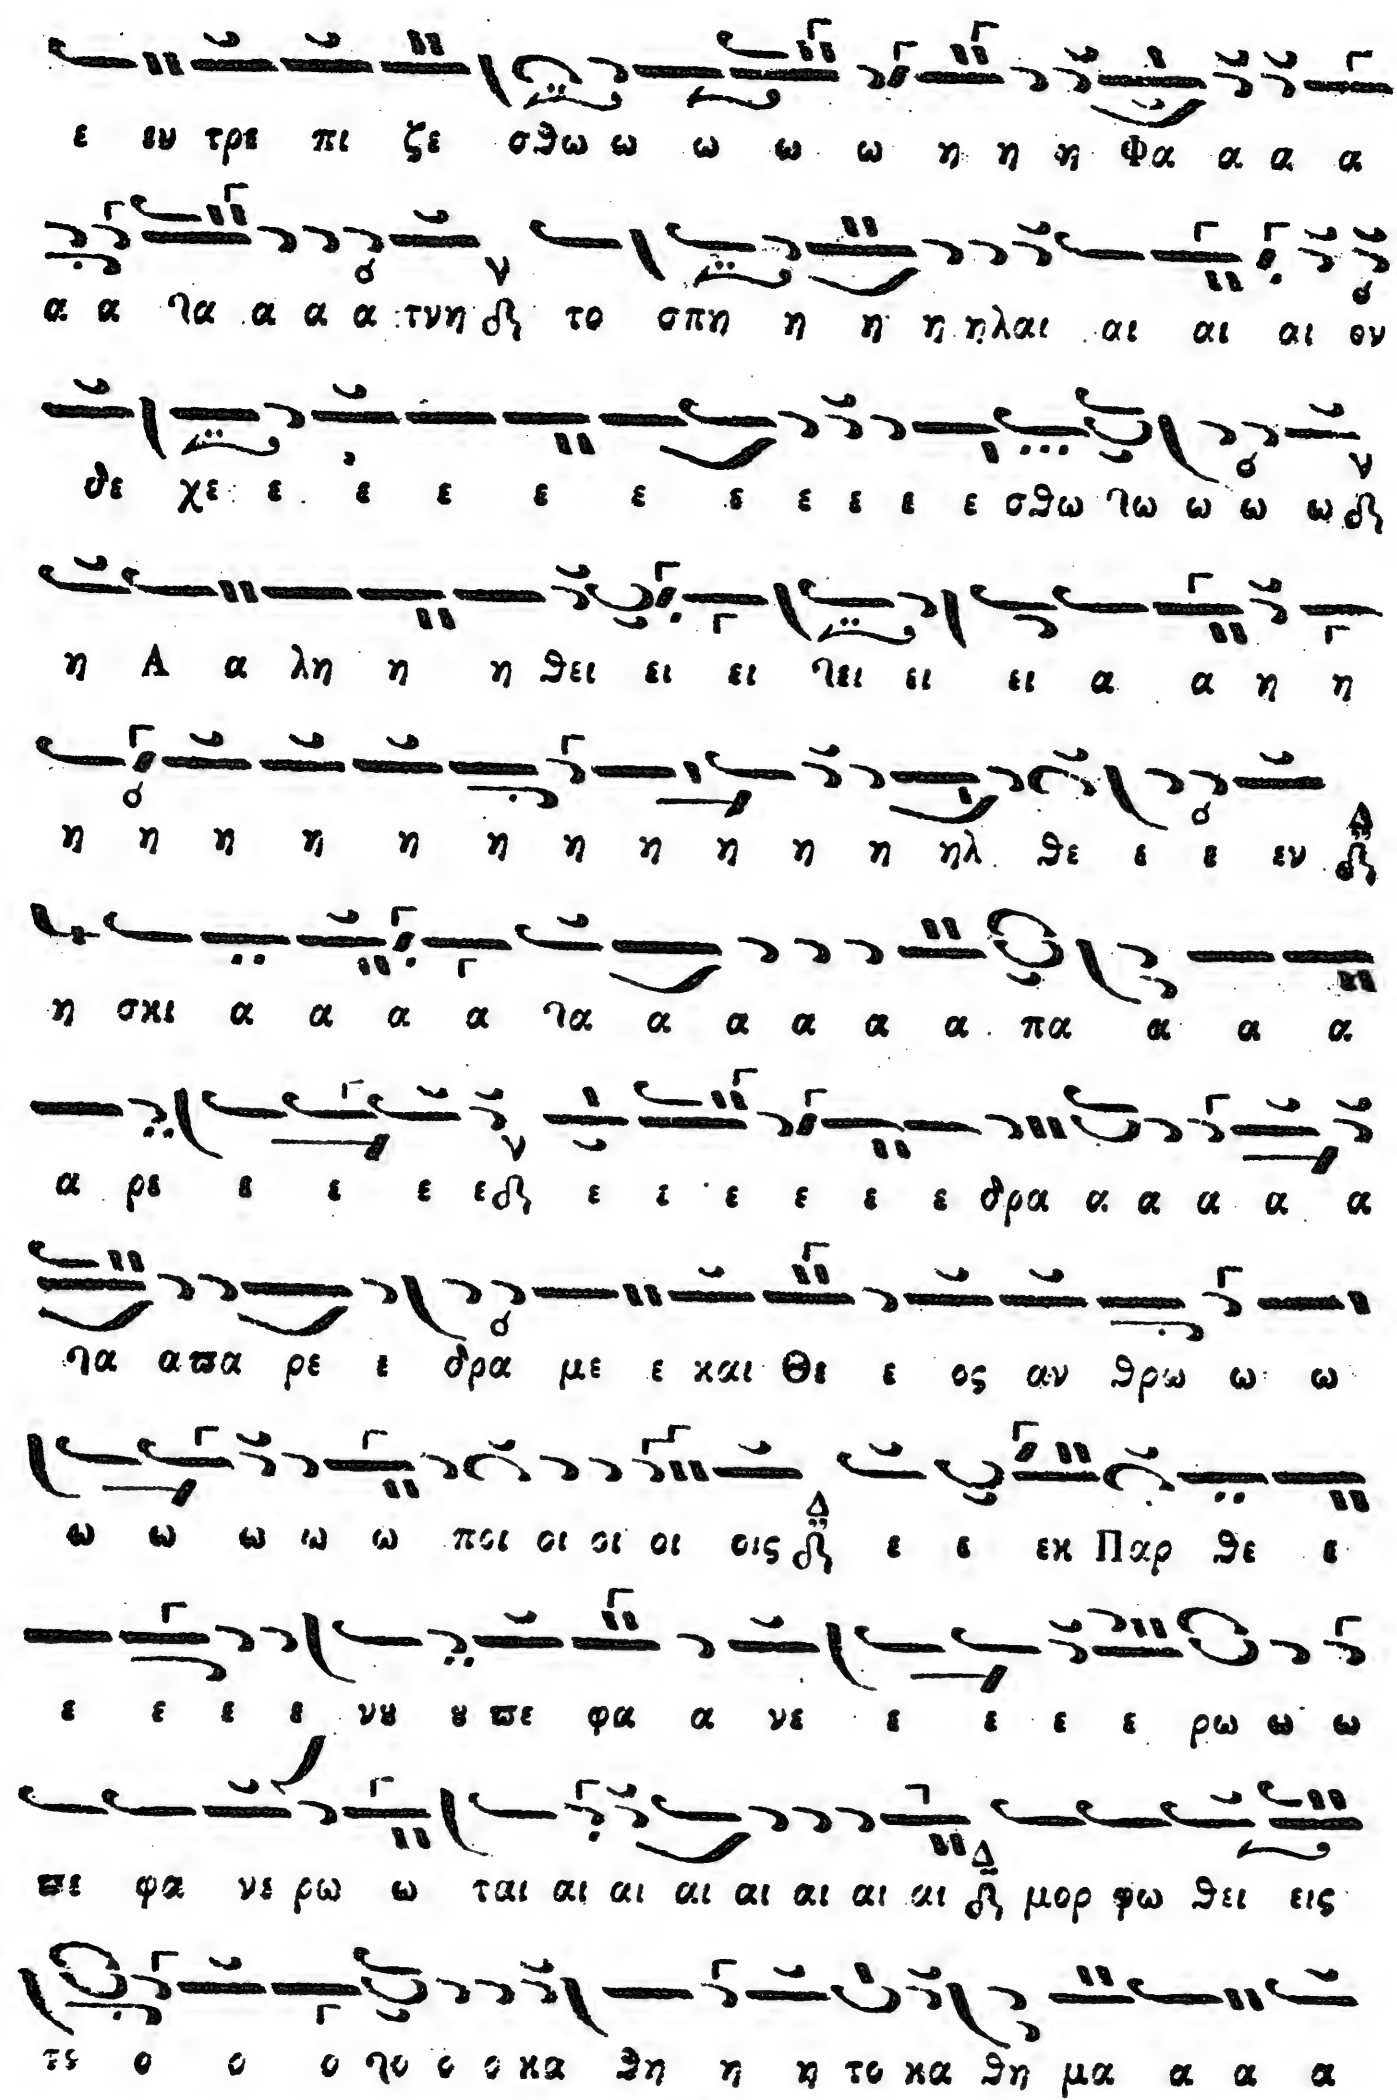 ε εν τρε πι ζε σθω ω ω ω ω η η η Φα α α α
α α τα α α α τνη το σπη η η η ηλαι αι αι αι ον
δε χε ε ε ε ε ε ε ε ε ε ε σθω τω ω ω ω
η Α α λη η η θει ει ει τει ει ει α α η η
η η η η η η η η η η η ηλ θε ε ε εν
η σκι α α α α τα α α α α α πα α α α
α ρε ε ε ε ε ε ε ε ε ε ε δρα α α α α α
τα απα ρε ε δρα με ε και Θε ε ος αν θρω ω ω
ω ω ω ω ω ποι οι οι οι οις ε ε εκ Παρ θε ε
ε ε ε ε νȣ ȣ πε φα α νε ε ε ε ε ρω ω ω
πε φα νε ρω ω ται αι αι αι αι αι αι αι μορ φω θει εις
ο ο ο το ο ο κα θη η η το κα θη μα α α α